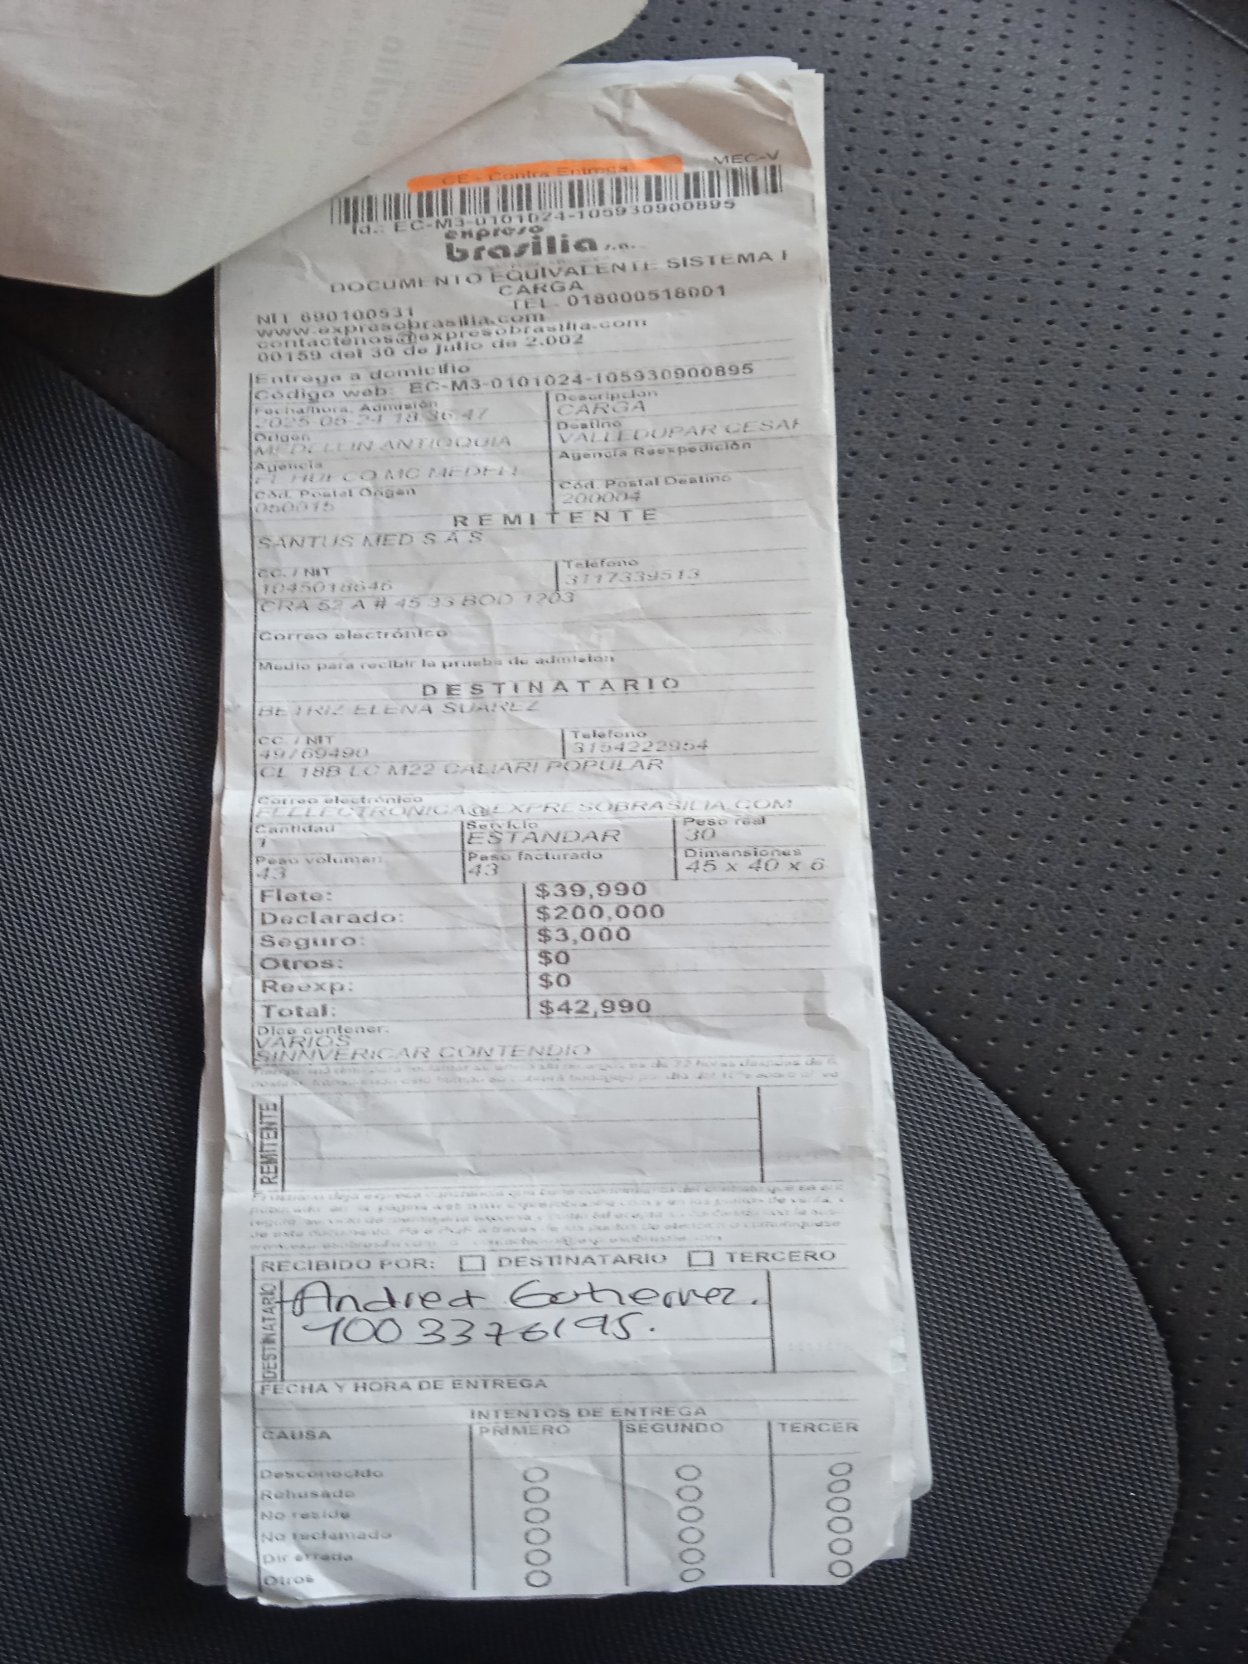 MEC-V
CE - Contra Entrega
Id.: EC-M3-0101024-105930900895
expreso
brasilia s.a.
DOCUMENTO EQUIVALENTE SISTEMA
CARGA
NIT 890100531 TEL. 018000518001
www.expresobrasilia.com
contactenos@expresobrasilia.com
00159 del 30 de julio de 2.002
Entrega a domicilio
Código web: EC-M3-0101024-105930900895
Fecha/hora. Admisión Descripción
2025-05-24 18:36:47 CARGA
Origen Destino
MEDELLIN ANTIOQUIA VALLEDUPAR CESAR
Agencia Agencia Reexpedición
EL HUECO MC MEDELL
Cód. Postal Origen Cód. Postal Destino
050015 200004
REMITENTE
SANTUS MED S A S
CC. / NIT Teléfono
1045018646 3117339513
CRA 52 A # 45 33 BOD 1203
Correo electrónico
Medio para recibir la prueba de admisión
DESTINATARIO
BETRIZ ELENA SUAREZ
CC. / NIT Teléfono
49769490 3154222954
CL 18B LC M22 CALIARI POPULAR
Correo electrónico
FELLECTRONICA@EXPRESOBRASILIA.COM
Cantidad Servicio Peso real
1 ESTANDAR 30
Peso volumen Peso facturado Dimensiones
43 43 45 x 40 x 6
Flete: $39,990
Declarado: $200,000
Seguro: $3,000
Otros: $0
Reexp: $0
Total: $42,990
Dice contener:
VARIOS
SINNVERICAR CONTENDIO
REMITENTE
RECIBIDO POR: DESTINATARIO TERCERO
DESTINATARIO
Andrea Gutierrez.
1003376195.
FECHA Y HORA DE ENTREGA
INTENTOS DE ENTREGA
CAUSA PRIMERO SEGUNDO TERCER
Desconocido
Rehusado
No reside
No reclamado
Dir errada
Otros